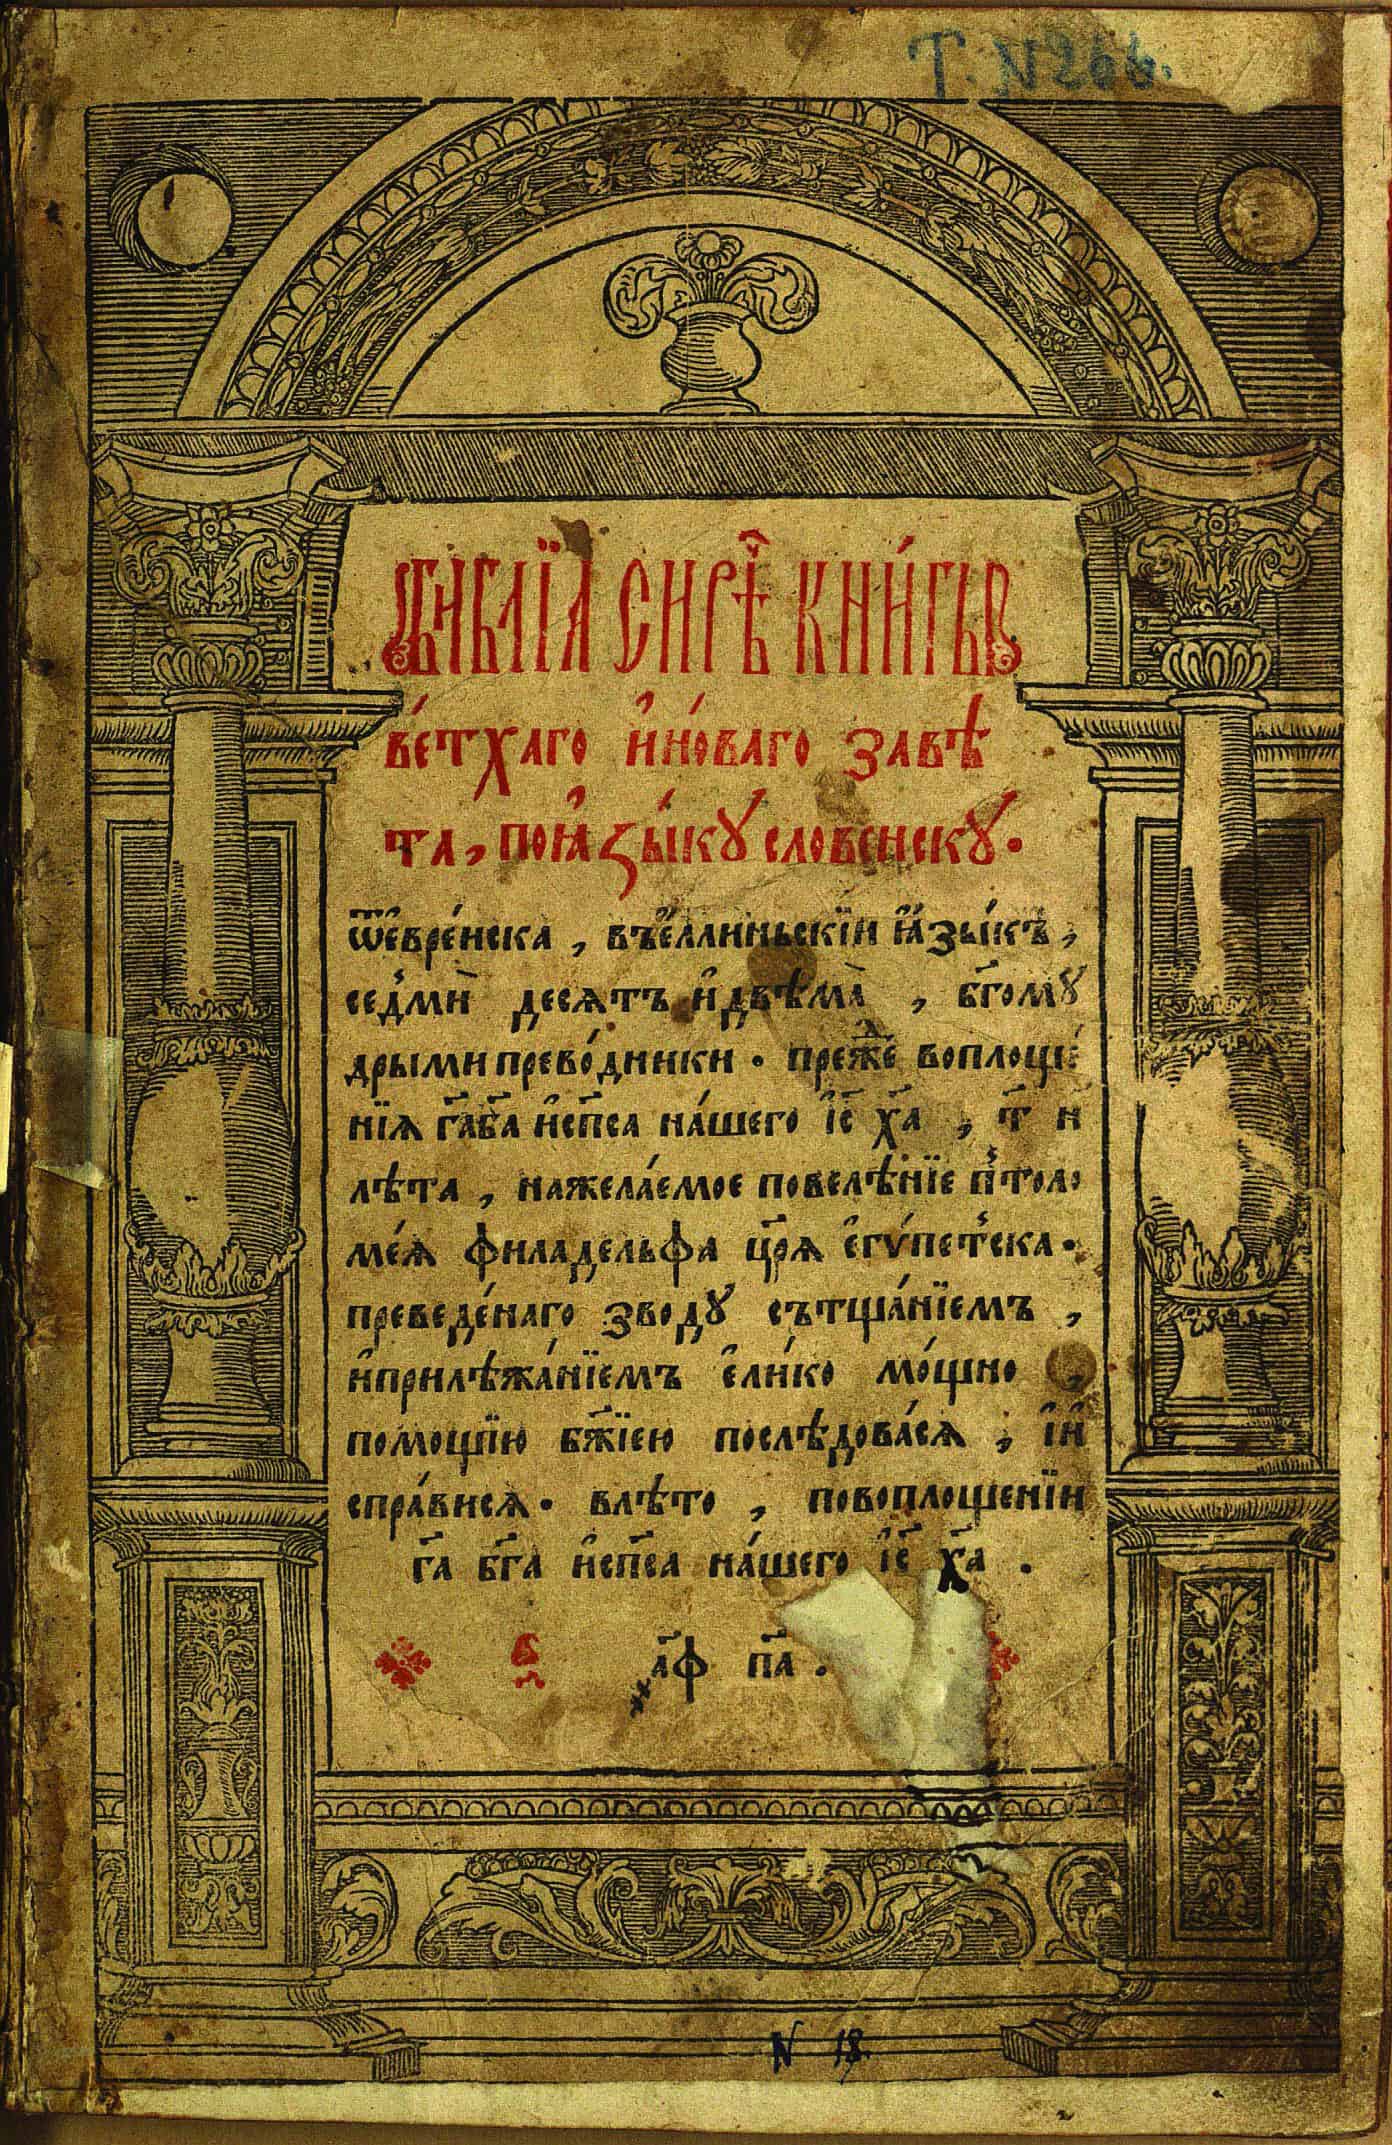 Т. N 266.
Библїѧ сирѣ҇ч кни́гы
ве́тхаго и҆но́ваго завѣ
та, поꙗ҆зы́кꙋ словенскꙋ.
Ѿе҆вре́йска, въе҆́ллиньскїй ꙗ҆зы́къ,
се́дмь десѧтъ и҆двѣма̀, бг҃омꙋ
дрыми прево́дники. прежⷣе воплоще́
нїѧ га҃ бг҃а и҆сп҃са на́шего і҆с҃ х҃а, т҃ и҃
лѣта, нажела́емое повелѣ́нїе пⷮтоло
ме́ѧ филадельфа цр҃ѧ е҆гѵ́петска.
преведе́наго зводꙋ сътща́нїемъ,
и҆прилѣжа́нїемъ е҆ли́ко мо́щно,
помощїю бж҃їею послѣдова́сѧ, і҆и҆
спра́висѧ. влѣто, повоплощенїи
га҃ бг҃а и҆сп҃са на́шего і҆с҃ х҃а.
а҃ф п҃а.
N 18.